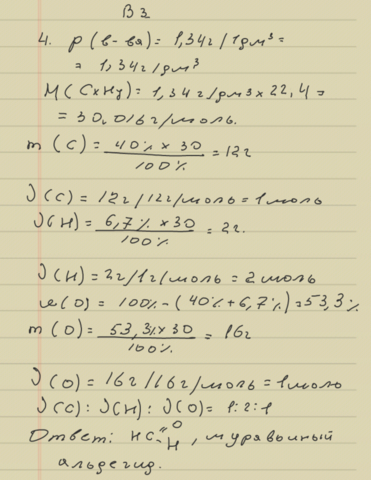 В 3
4. р (в-ва) = 1,34г/1дм³ =
= 1,34г/дм³
М (СхНу) = 1,34г/дм³ х 22,4 =
= 30,016г/моль.
m (С) = 40% х 30 / 100% = 12г
ν(С) = 12г/12г/моль = 1моль
ν(Н) = 6,7% х 30 / 100% = 2г.
ν(Н) = 2г/1г/моль = 2моль
w(О) = 100% - (40% + 6,7%) = 53,3%
m (О) = 53,3% х 30 / 100% = 16г
ν(О) = 16г/16г/моль = 1моль
ν(С) : ν(Н) : ν(О) = 1:2:1
Ответ: НС=О-Н, муравьиный
альдегид.